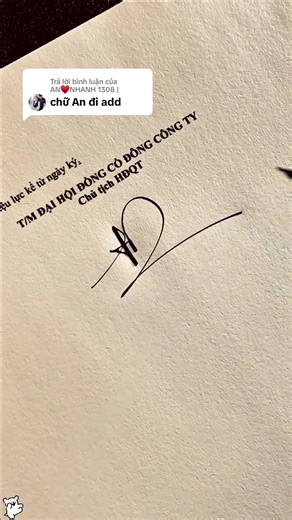 Trả lời bình luận của
AN❤️NHANH 1308 |
chữ An đi add
ệu lực kể từ ngày ký.
T/M ĐẠI HỘI ĐỒNG CỔ ĐÔNG CÔNG TY
Chủ tịch HĐQT